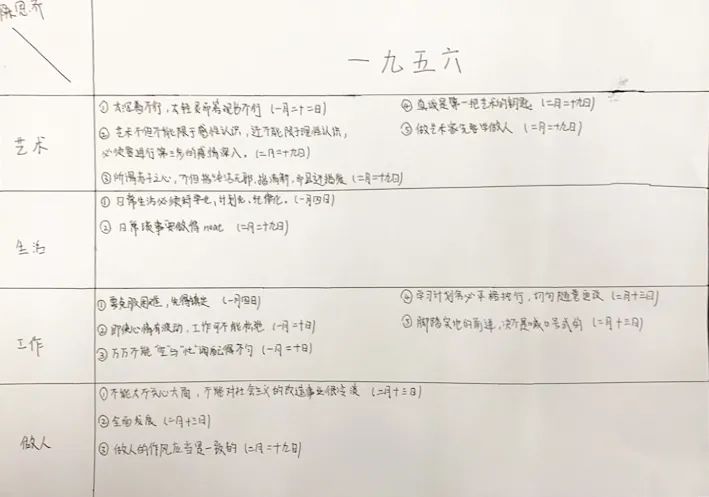 一九五六
艺术
① 太沉着不行，太轻灵而客观也不行 (一月二十二日)
② 艺术不但不能限于感性认识，还不能限于理性认识，
必须要进行第三步的感情深入。(二月二十九日)
③ 所谓赤子之心，不但指纯洁无邪，指清新，而且还指爱 (二月二十九日)
④ 真诚是第一把艺术的钥匙。(二月二十九日)
⑤ 做艺术家先要学做人 (二月二十九日)
生活
① 日常生活必须科学化，计划化，纪律化。(一月四日)
② 日常琐事要做得neat (二月二十九日)
工作
① 要克服困难，先得镇定 (一月四日)
② 即使心情有波动，工作可不能松弛 (一月二十日)
③ 万万不能“空”与“忙”调配得不匀 (一月二十日)
④ 学习计划务必严格执行，切勿随意更改 (二月十三日)
⑤ 脚踏实地的前进，决不是喊口号式的 (二月十三日)
做人
① 不能太不关心大局，不能对社会主义的改造事业很冷淡 (二月十三日)
② 全面发展 (二月十三日)
③ 做人的作风应当是一致的 (二月二十九日)